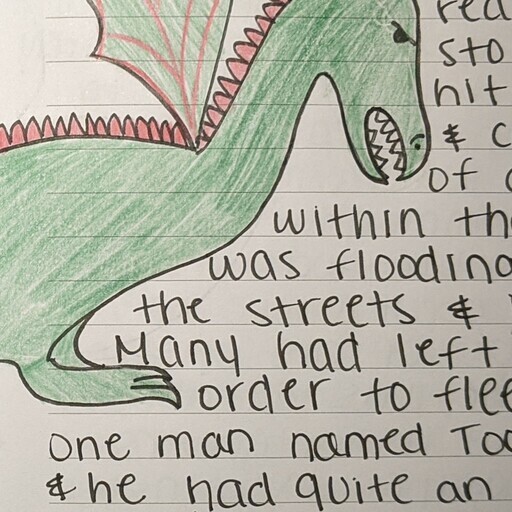 sto
hit
& c
of
within th
was flooding
the streets &
Many had left
order to flee
one man named Too
& he had quite an